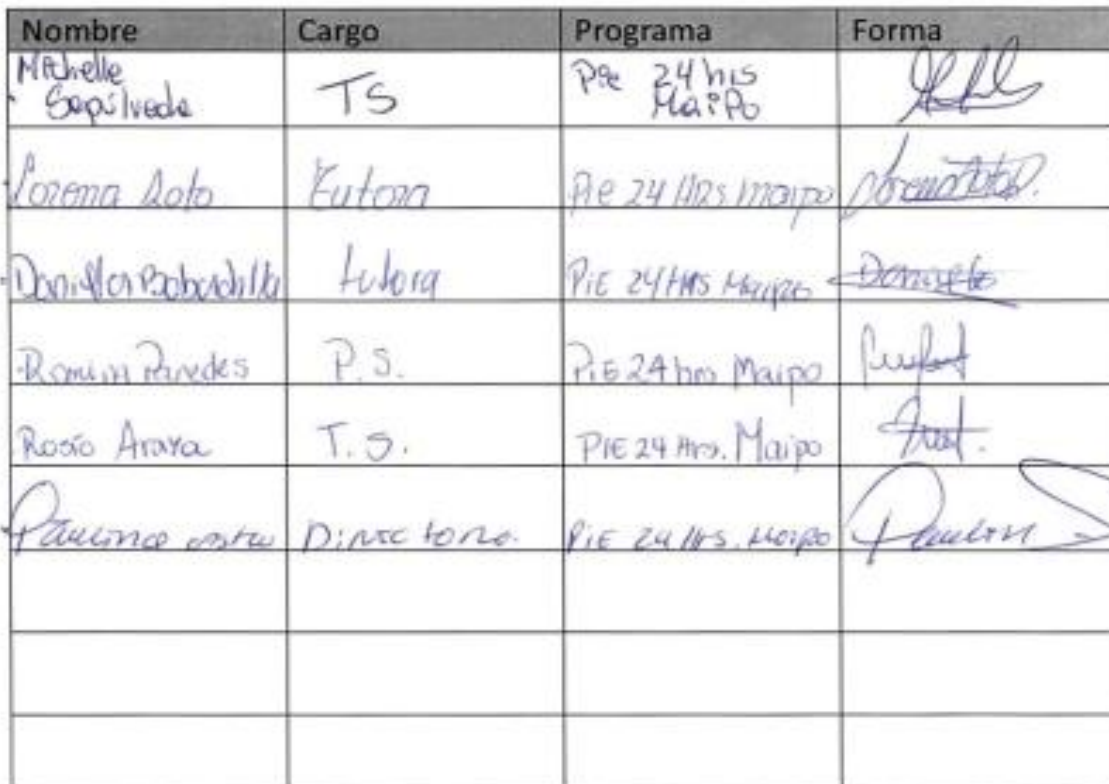 Nombre Cargo Programa Forma
Michelle
Sepúlveda TS Pie 24 hrs
Maipo
Lorena Soto Tutora PiE 24 HRS maipo
Daniella Bobadilla tutora PiE 24 HRS Maipo
Romina Paredes P.S. P.iE 24 hrs Maipo
Rosío Araya T.S. PIE 24 Hrs. Maipo
Paulina Directora. PiE 24 Hrs. Maipo Paulin